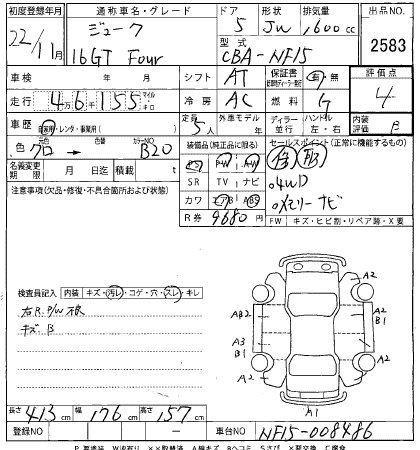 初度登録年月 通称車名・グレード ドア 形状 排気量 出品NO
22/11月 ジューク 5 JW 1,600cc 2583
16GT Four 型式 CBA-NF15
車検 年 月 シフト AT 保証書 有 無 評価点
走行 4万6千155 マイル・キロ 冷房 AC 燃料 G 4
車歴 自家用・レンタ・事業用( ) 定員 5人 外車モデル 年 ディーラー 並行 ハンドル 左・右 内装評価 B
色 クロ → 色替 カラーNO B20 装備品(純正品に限る) セールスポイント(正常に機能するもの)
名義変更期限 月 日迄 積載 t PS PW AW
注意事項(欠品・修復・不具合箇所および状態) SR TV ナビ ・4WD
カワ エアB ABS ・メモリーナビ
R券 9680円 FW キズ・ヒビ割・リペア跡・X要
検査員記入 内装 キズ・汚レ・コゲ・穴・スレ・キレ
右R.P/W不良
キズ B
A2 A2
AB2 A2
B1
A3 A2
B1
A2 A2
A1
長さ 413cm 幅 176cm 高さ 157cm
登録NO ー 車台NO NF15-008486
P 要塗装 W波有り ××取替済 A線キズ Bヘコミ Sサビ ×要交換 C腐食